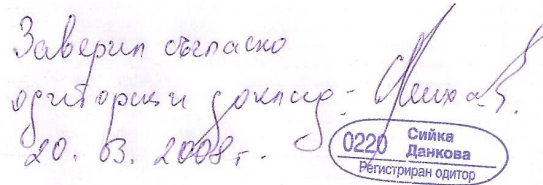 Заверил съгласно
одиторски доклад:
20. 03. 2008 г.
0220 Сийка
Данкова
Регистриран одитор